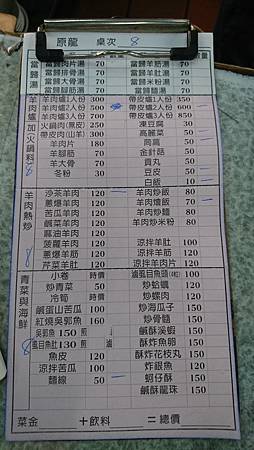 原龍 桌次 8
當歸湯
當歸肉片湯 70 當歸羊肚湯 70
當歸排骨湯 70 當歸羊筋湯 70
當歸大骨湯 70 當歸米粉湯 70
羊肉爐.加火鍋料
羊肉爐1人份 300 帶皮爐1人份 350
羊肉爐2人份 500 帶皮爐2人份 600
羊肉爐3人份 700 帶皮爐3人份 850
火鍋肉(無皮) 250 凍豆腐 30
帶皮肉(山羊) 300 高麗菜 50
羊肉片 180 茼蒿 50
羊腳筋 70 金針菇 50
羊大骨 70 貢丸 50
冬粉 30 豆皮 50
白飯 10
羊肉熱炒
沙茶羊肉 120 羊肉炒飯 80
蔥爆羊肉 120 羊肉燴飯 70
苦瓜羊肉 120 羊肉炒麵 80
鹹菜羊肉 120 羊肉炒米粉 80
麻油羊肉 120
菠蘿羊肉 120 涼拌羊肚 100
蔥爆羊筋 120 涼拌羊筋 120
芹菜羊肚 120 涼拌羊肉片 120
青菜與海鮮
小卷 時價 滷虱目魚頭
炒青菜 50 炒蛤蠣 120
冷筍 時價 炒螺肉 120
鹹蛋山苦瓜 100 炒海瓜子 150
紅燒吳郭魚 160 炒骨髓 150
吳郭魚 150 煎 滷 鹹酥溪蝦 150
虱目魚肚 130 煎 滷 酥炸魚卵 150
魚皮 120 酥炸花枝丸 150
涼拌苦瓜 100 炸銀魚 120
麵線 50 蚵仔酥 120
鹹酥龍珠 150
菜金 +飲料 二總價